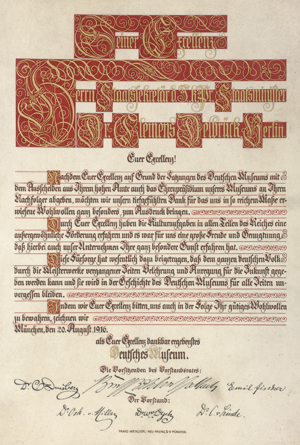 Seiner Exzellenz
Herrn Staatssekretär Staatsminister
Dr. Clemens Delbrück Berlin
Euer Exzellenz!
Nachdem Euer Exzellenz auf Grund der Satzungen des Deutschen Museums mit
dem Ausscheiden aus Ihrem hohen Amte auch das Ehrenpräsidium unseres Museums an Ihren
Nachfolger abgeben, möchten wir unsern tiefgefühlten Dank für das uns in so reichem Maße er-
wiesene Wohlwollen ganz besonders zum Ausdruck bringen.
Durch Euer Exzellenz haben die Kulturaufgaben in allen Teilen des Reiches eine
außergewöhnliche Förderung erfahren und es war für uns eine große Freude und Genugtuung
daß hierbei auch unser Unternehmen Ihre ganz besondere Gunst erfahren hat.
Diese Fürsorge hat wesentlich dazu beigetragen, daß dem ganzen deutschen Volk
durch die Meisterwerke vergangener Zeiten Belehrung und Anregung für die Zukunft gege-
ben werden kann und sie wird in der Geschichte des Deutschen Museums für alle Zeiten un-
vergessen bleiben.
Indem wir Euer Exzellenz bitten, uns auch in der Folge Ihr gütiges Wohlwollen
zu bewahren, zeichnen wir
München, den 20. August 1916.
als Euer Exzellenz dankbar ergebenstes
Deutsches Museum.
Die Vorsitzenden des Vorstandsrates:
Emil Fischer
Der Vorstand:
Dr. Osk. v. Miller Dr. C. v. Linde